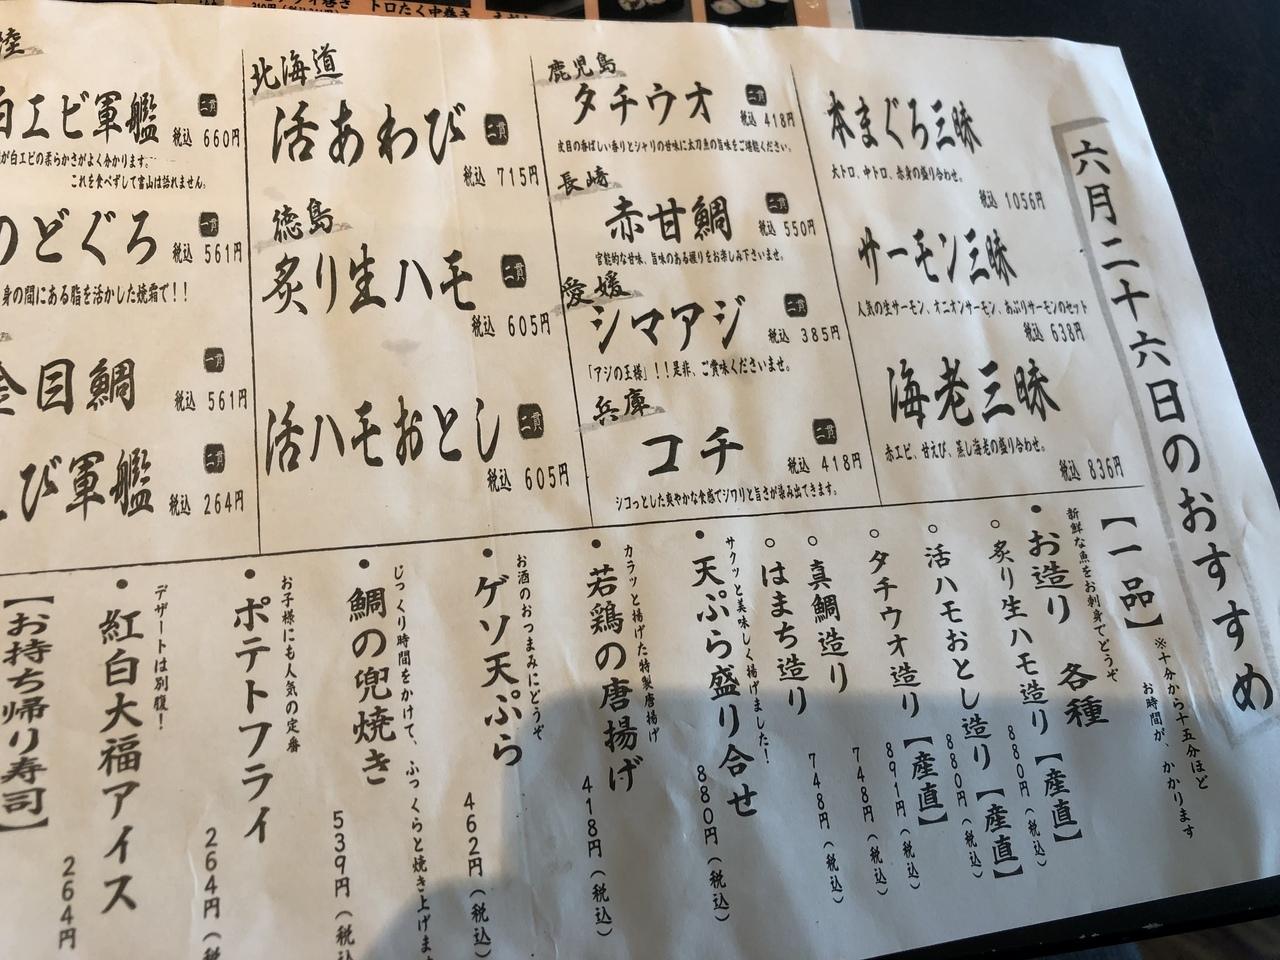 六月二十六日のおすすめ
本まぐろ三昧
大トロ、中トロ、赤身の盛り合わせ。
税込 1056円
サーモン三昧
人気の生サーモン、オニオンサーモン、あぶりサーモンのセット
税込 638円
海老三昧
赤エビ、甘えび、蒸し海老の盛り合わせ。
税込 836円
鹿児島
タチウオ 二貫
税込 418円
皮目の香ばしい香りとシャリの甘味に太刀魚の旨味をご堪能ください。
長崎
赤甘鯛 二貫
税込 550円
官能的な甘味、旨味のある握りをお楽しみ下さいませ。
愛媛
シマアジ 二貫
税込 385円
「アジの王様」!!是非、ご賞味くださいませ。
兵庫
コチ 二貫
税込 418円
シコっとした爽やかな食感でジワリと旨さが染み出てきます。
北海道
活あわび 二貫
税込 715円
徳島
炙り生ハモ 二貫
税込 605円
活ハモおとし 二貫
税込 605円
陸
白エビ軍艦 二貫
税込 660円
が白エビの柔らかさがよく分かります。
これを食べずして富山は語れません。
のどぐろ 一貫
税込 561円
身の間にある脂を活かした焼霜で!!
金目鯛 一貫
税込 561円
び軍艦 二貫
税込 264円
【一品】
※十分から十五分ほど
お時間が、かかります
新鮮な魚をお刺身でどうぞ
・お造り 各種
○炙り生ハモ造り【産直】
880円(税込)
○活ハモおとし造り【産直】
880円(税込)
○タチウオ造り【産直】
891円(税込)
○真鯛造り
748円(税込)
○はまち造り
748円(税込)
サクッと美味しく揚げました!
・天ぷら盛り合せ
880円(税込)
カラッと揚げた特製唐揚げ
・若鶏の唐揚げ
418円(税込)
お酒のおつまみにどうぞ
・ゲソ天ぷら
462円(税込)
じっくり時間をかけて、ふっくらと焼き上げま
・鯛の兜焼き
539円(税込
お子様にも人気の定番
・ポテトフライ
264円(税
デザートは別腹!
・紅白大福アイス
264円
【お持ち帰り寿司】
トロたく中巻き